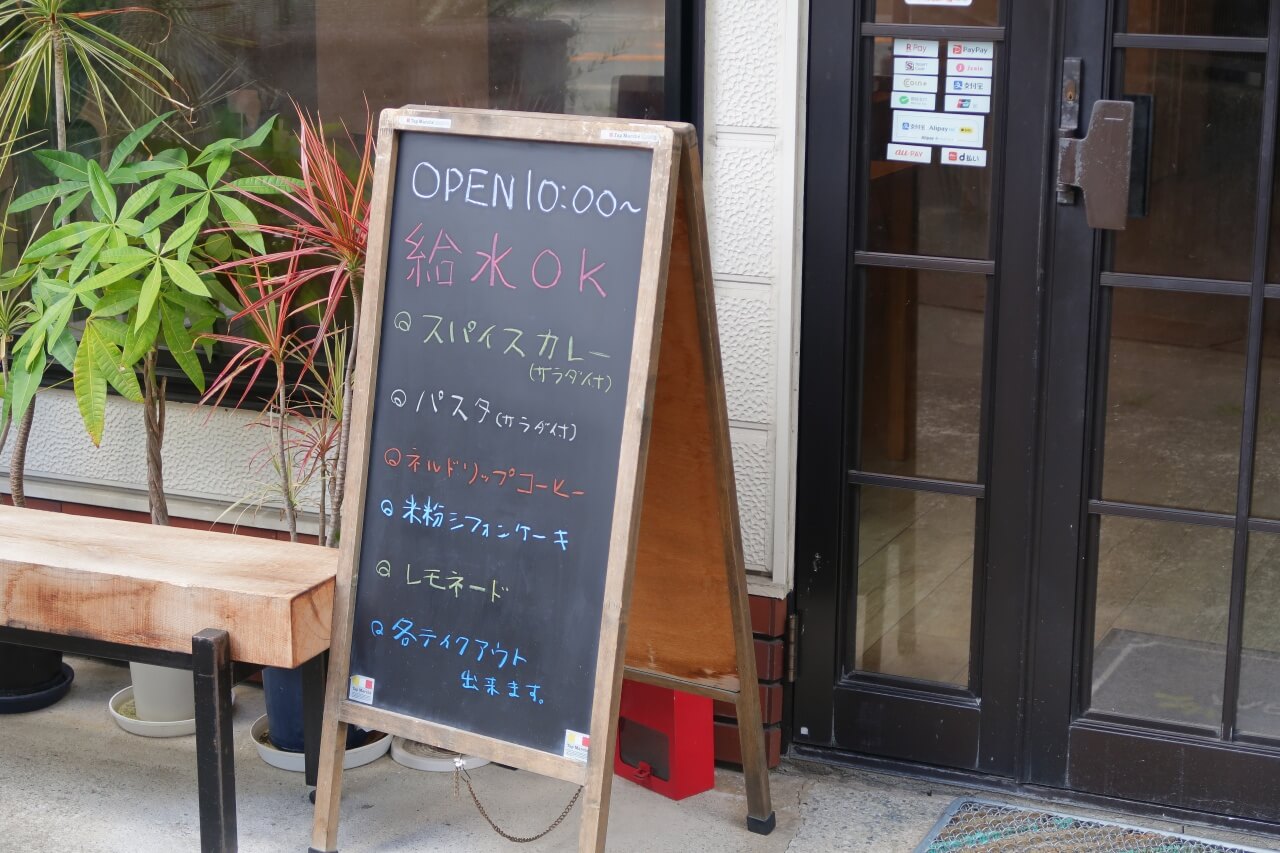 OPEN 10:00~
給水OK
スパイスカレー
(サラダ付)
パスタ(サラダ付)
ネルドリップコーヒー
米粉シフォンケーキ
レモネード
各テイクアウト
出来ます。
R Pay
PayPay
支付宝
支付宝 Alipay
au PAY
d払い